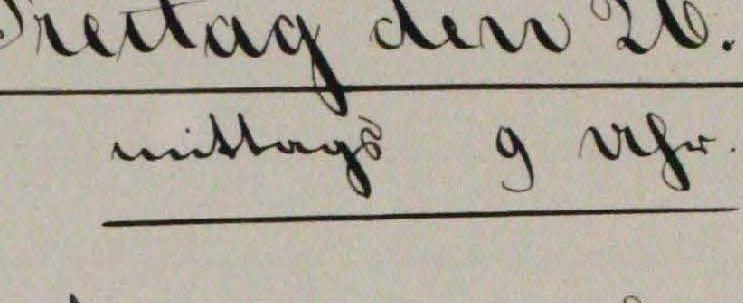 Freitag den 26.
mittags 9 Uhr.